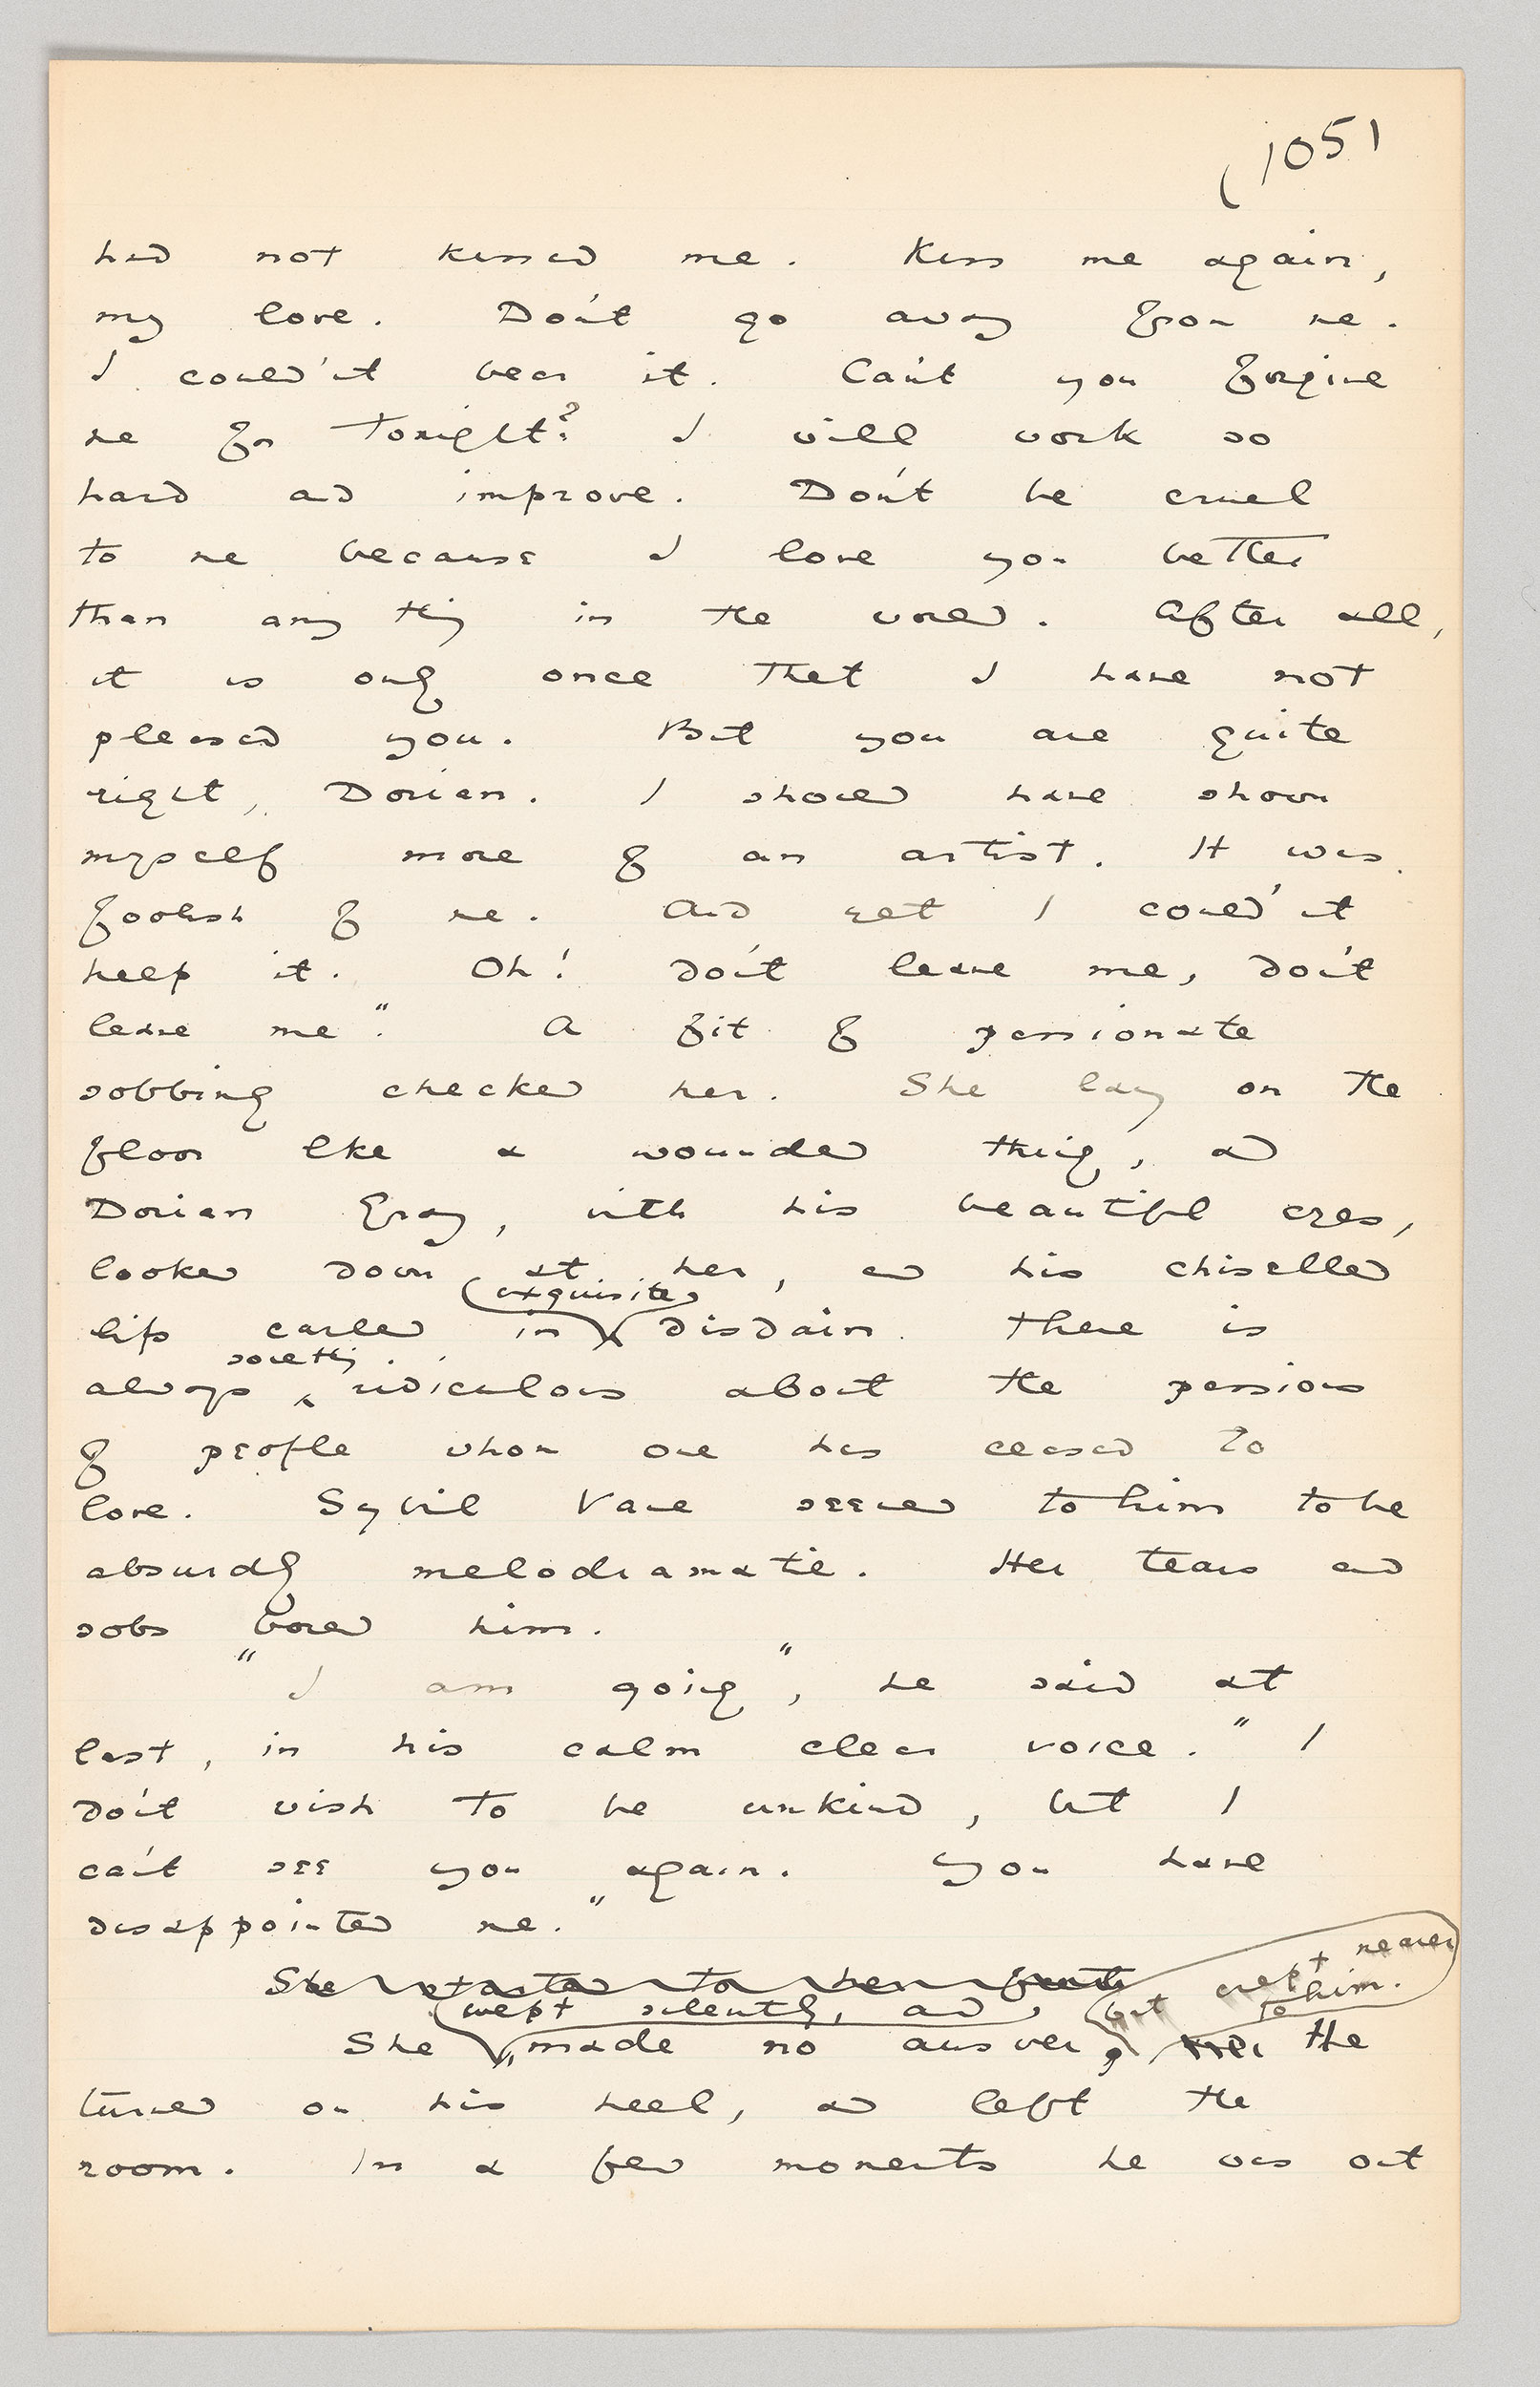 1051
had not kissed me. Kiss me again,
my love. Don't go away from me.
I could'nt bear it. Can't you forgive
me for tonight? I will work so
hard and improve. Don't be cruel
to me because I love you better
than any thing in the world. After all,
it is only once that I have not
pleased you. But you are quite
right, Dorian. I should have shown
myself more of an artist. It was
foolish of me. And yet I could'nt
help it. Oh! don't leave me, don't
leave me". A fit of passionate
sobbing checked her. She lay on the
floor like a wounded thing, and
Dorian Gray, with his beautiful eyes,
looked down at her, and his chiselled
exquisite
lips curled in disdain. There is
something
always ridiculous about the passions
of people whom one has ceased to
love. Sybil Vane seemed to him to be
absurdly melodramatic. Her tears and
sobs bored him.
"I am going", he said at
last, in his calm clear voice. "I
don't wish to be unkind, but I
can't see you again. You have
disappointed me."
She started to her feet
crept nearer
to him.
wept silently, and but
She made no answer, He
turned on his heel, and left the
room. In a few moments he was out